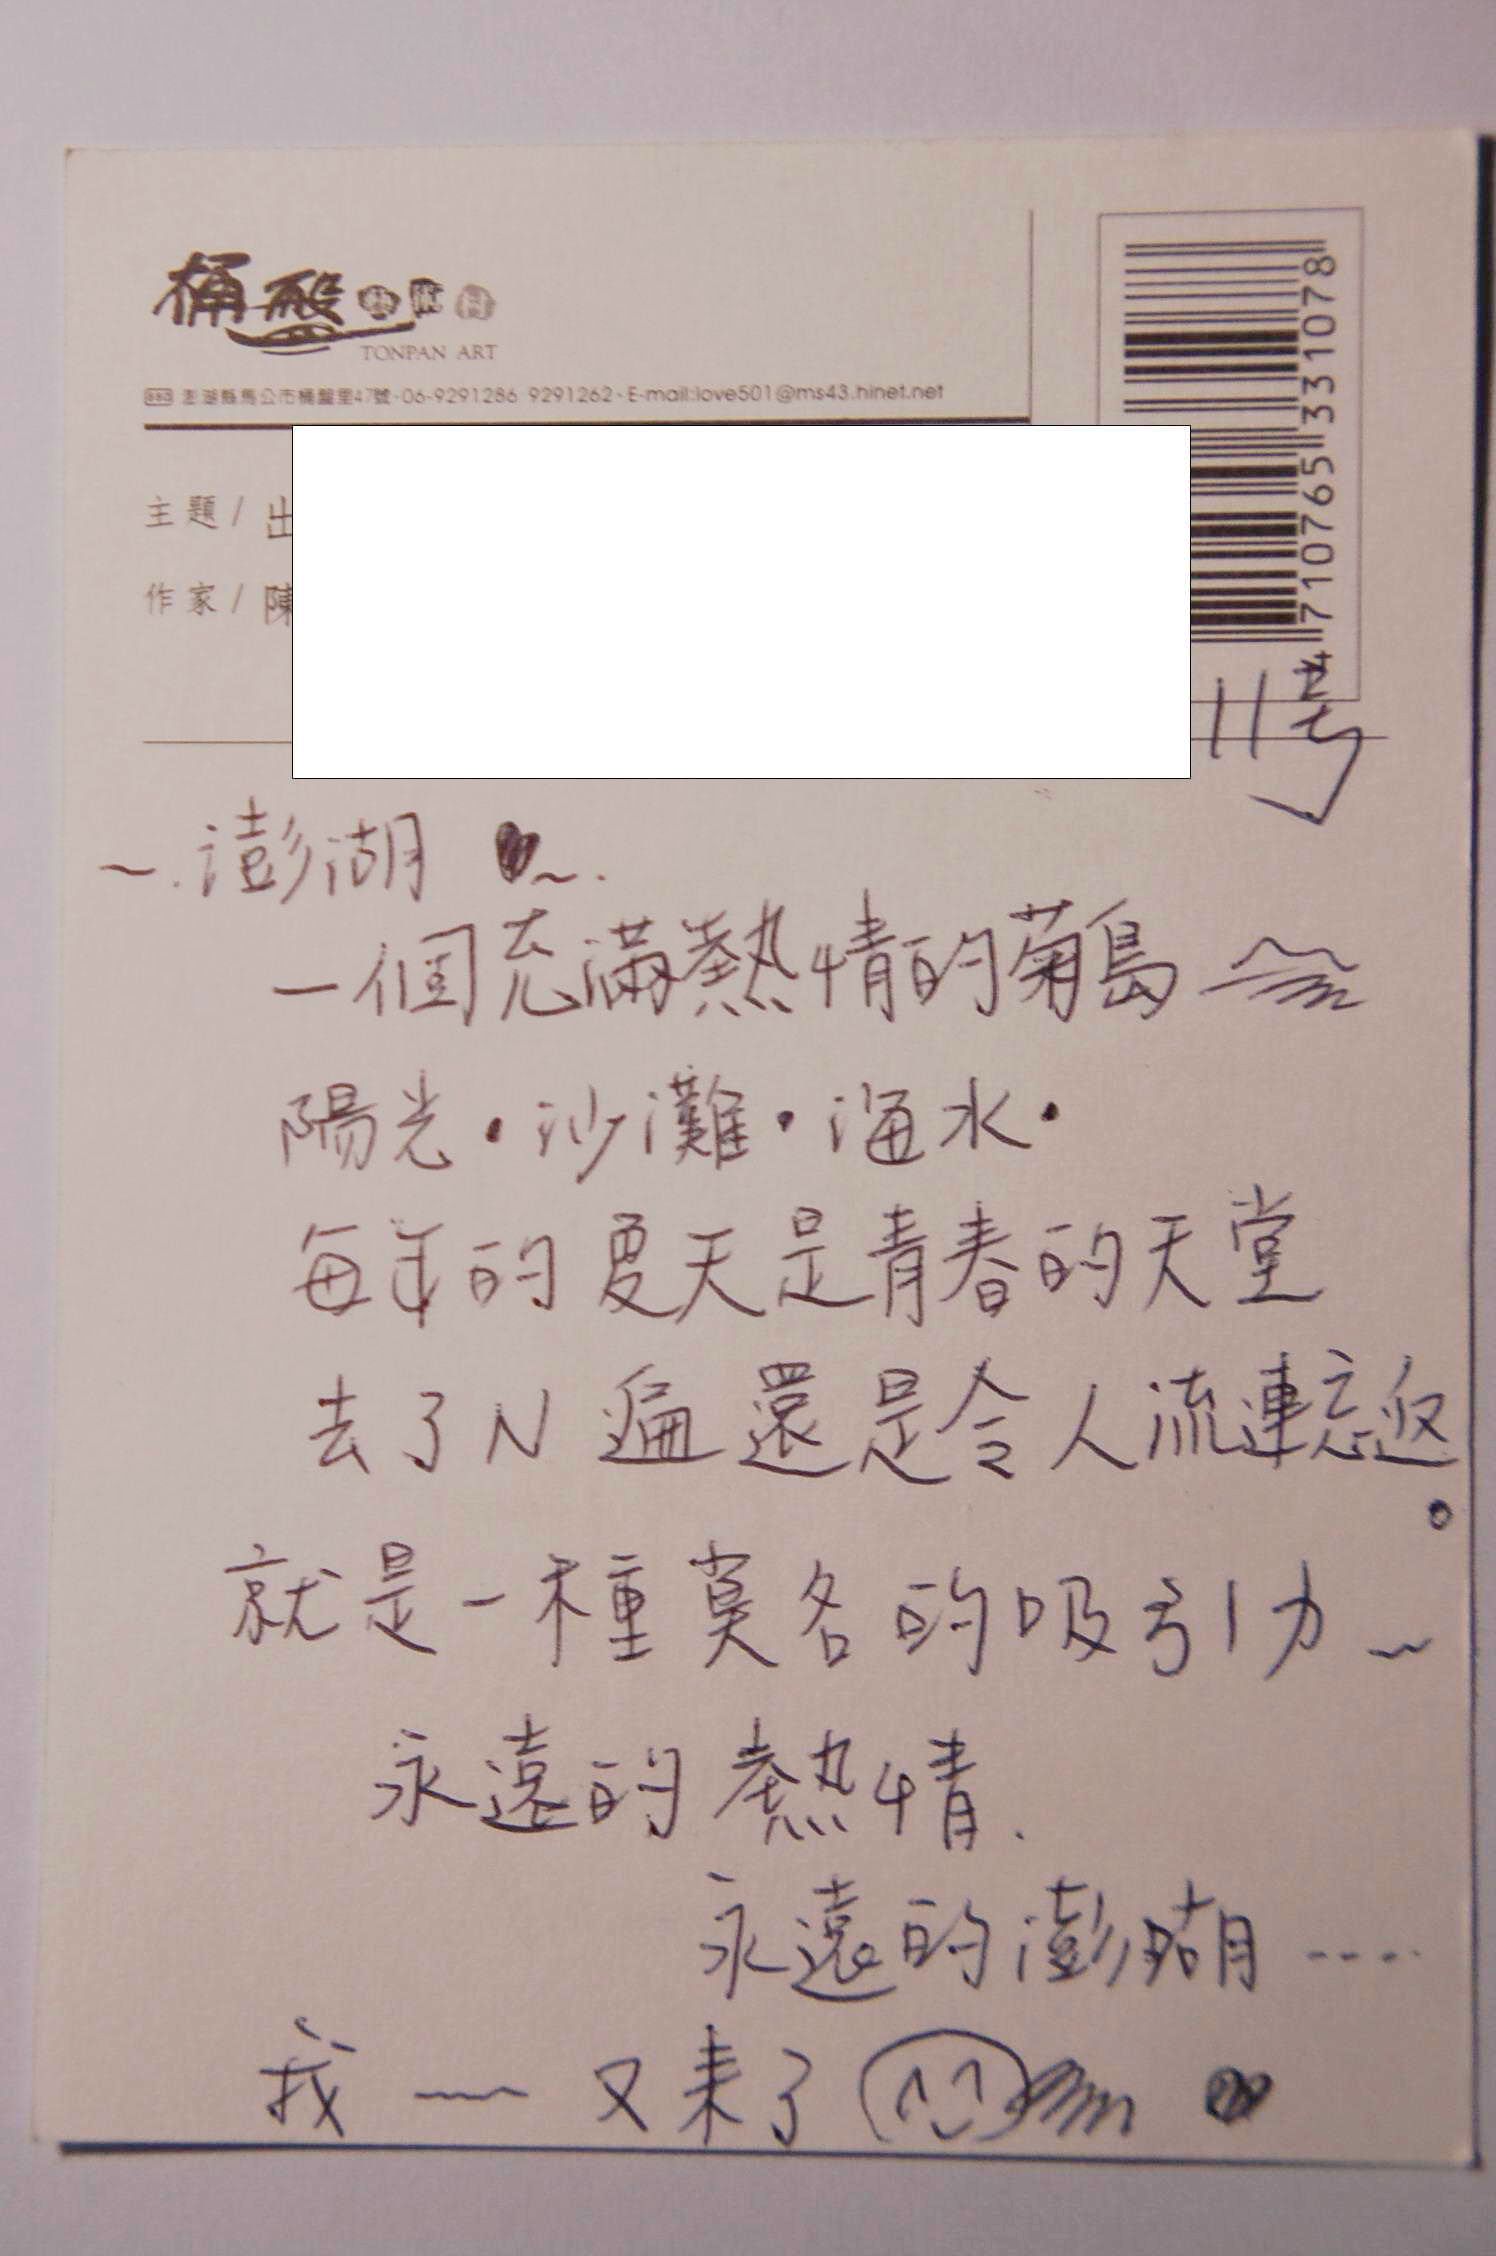 桶盤藝術村
TONPAN ART
880 澎湖縣馬公市桶盤里47號·06-9291286 9291262·E-mail:love501@ms43.hinet.net
4 710765 331078
主題/出
作家/陳
11号
~.澎湖 ~.
一個充滿熱情的菊島
陽光·沙灘·海水·
每年的夏天是青春的天堂
去了N遍還是令人流連忘返。
就是一種莫名的吸引力~
永遠的熱情.
永遠的澎湖----
我~~又来了